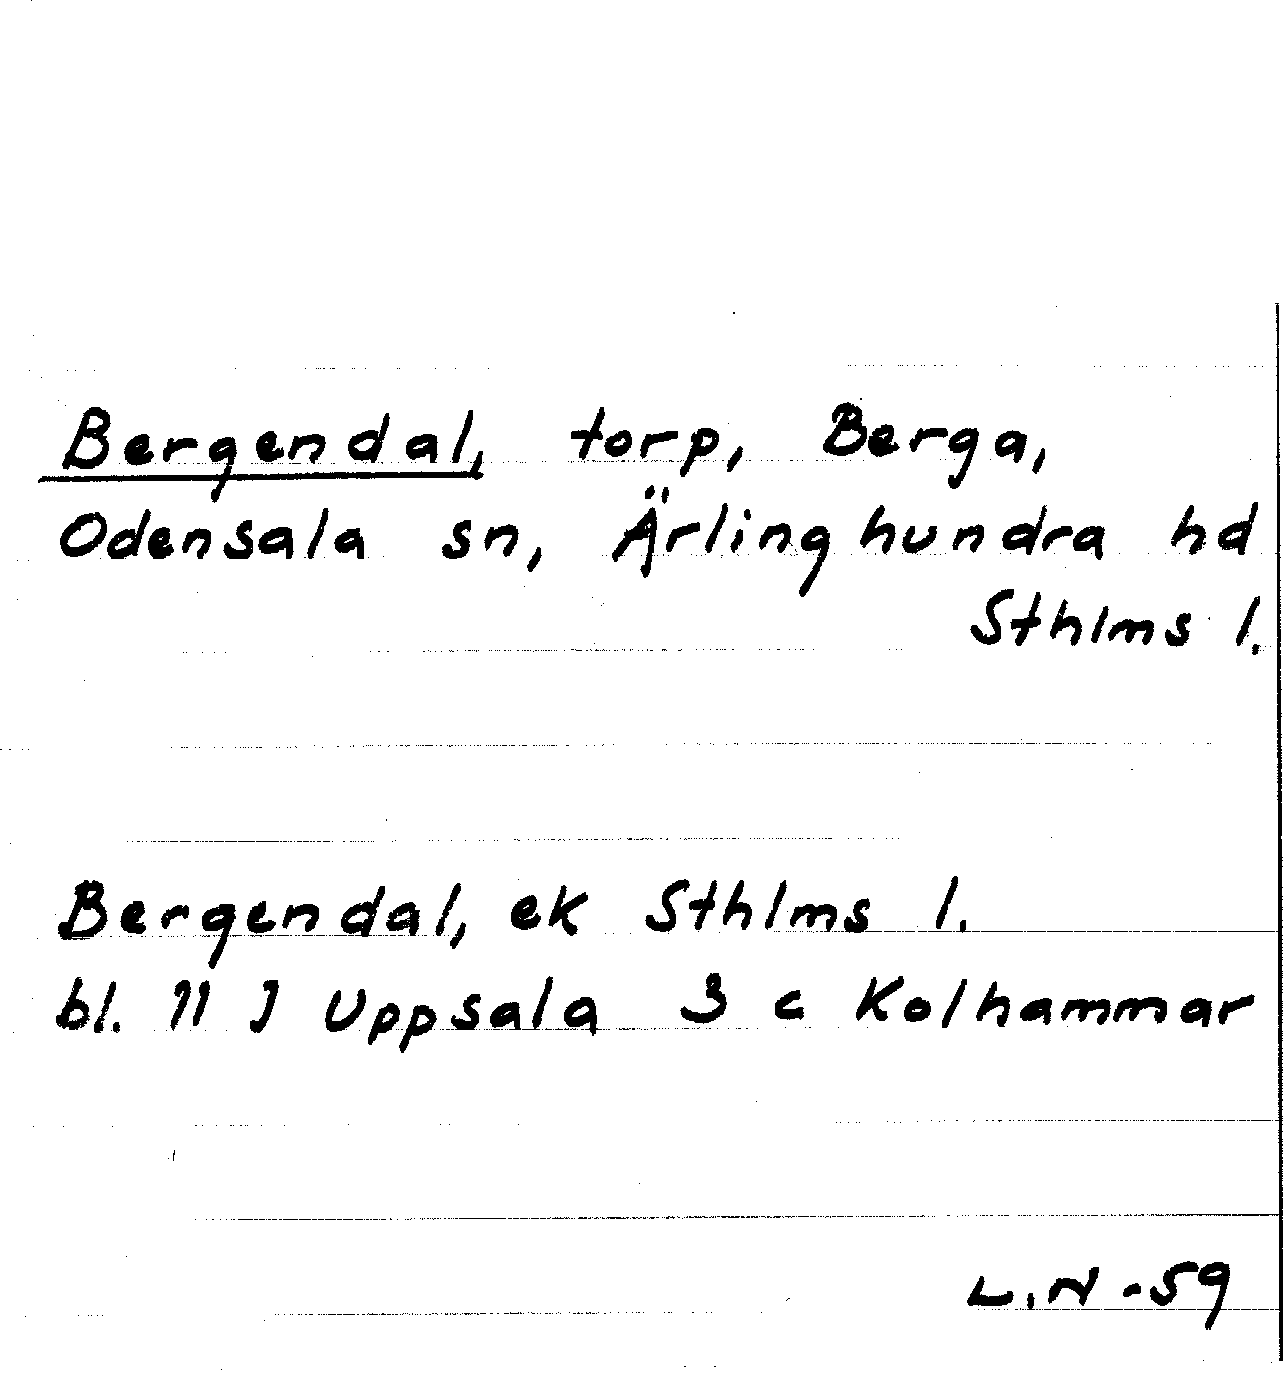 Bergendal, torp, Berga,
Odensala sn, Ärlinghundra hd
Sthlms l.
Bergendal, ek Sthlms l.
bl. 11 J Uppsala 3 c Kolhammar
L.N -59